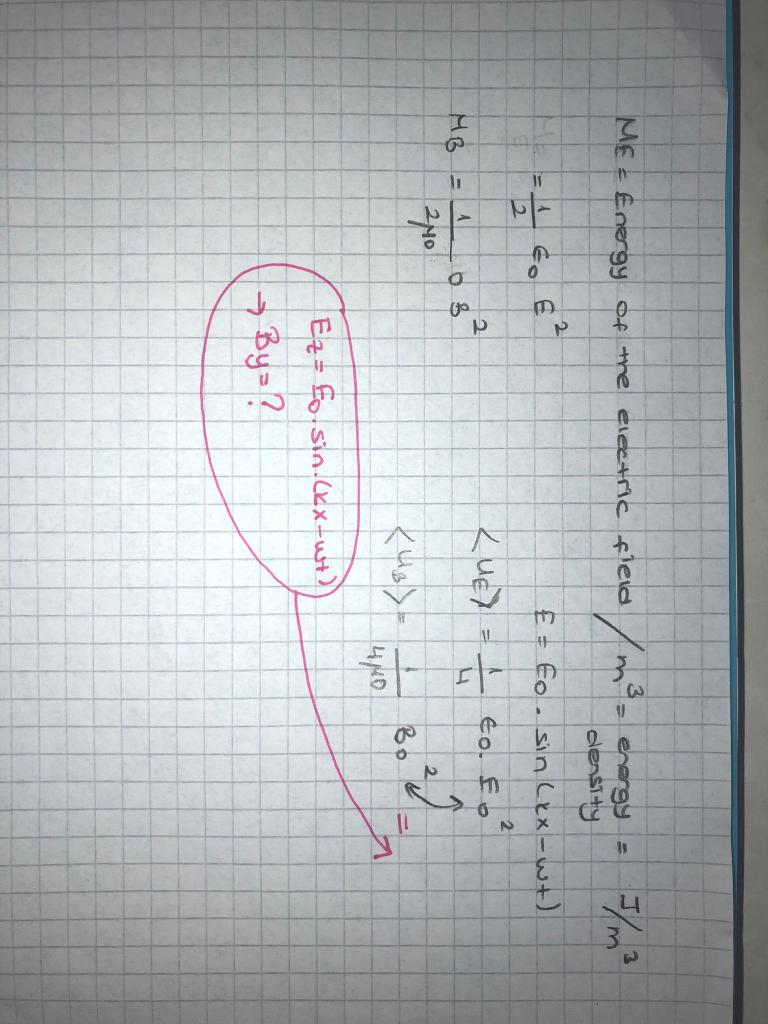 ME = Energy of the electric field / m³ = energy density = J/m³
ME = 1/2 ϵ0 E²
E = E0 . sin (kx - wt)
MB = 1/2μ0 0 B²
<UE> = 1/4 ϵ0 . E0²
<UB> = 1/4μ0 B0² =
Ez = E0 . sin . (kx - wt)
→ By = ?